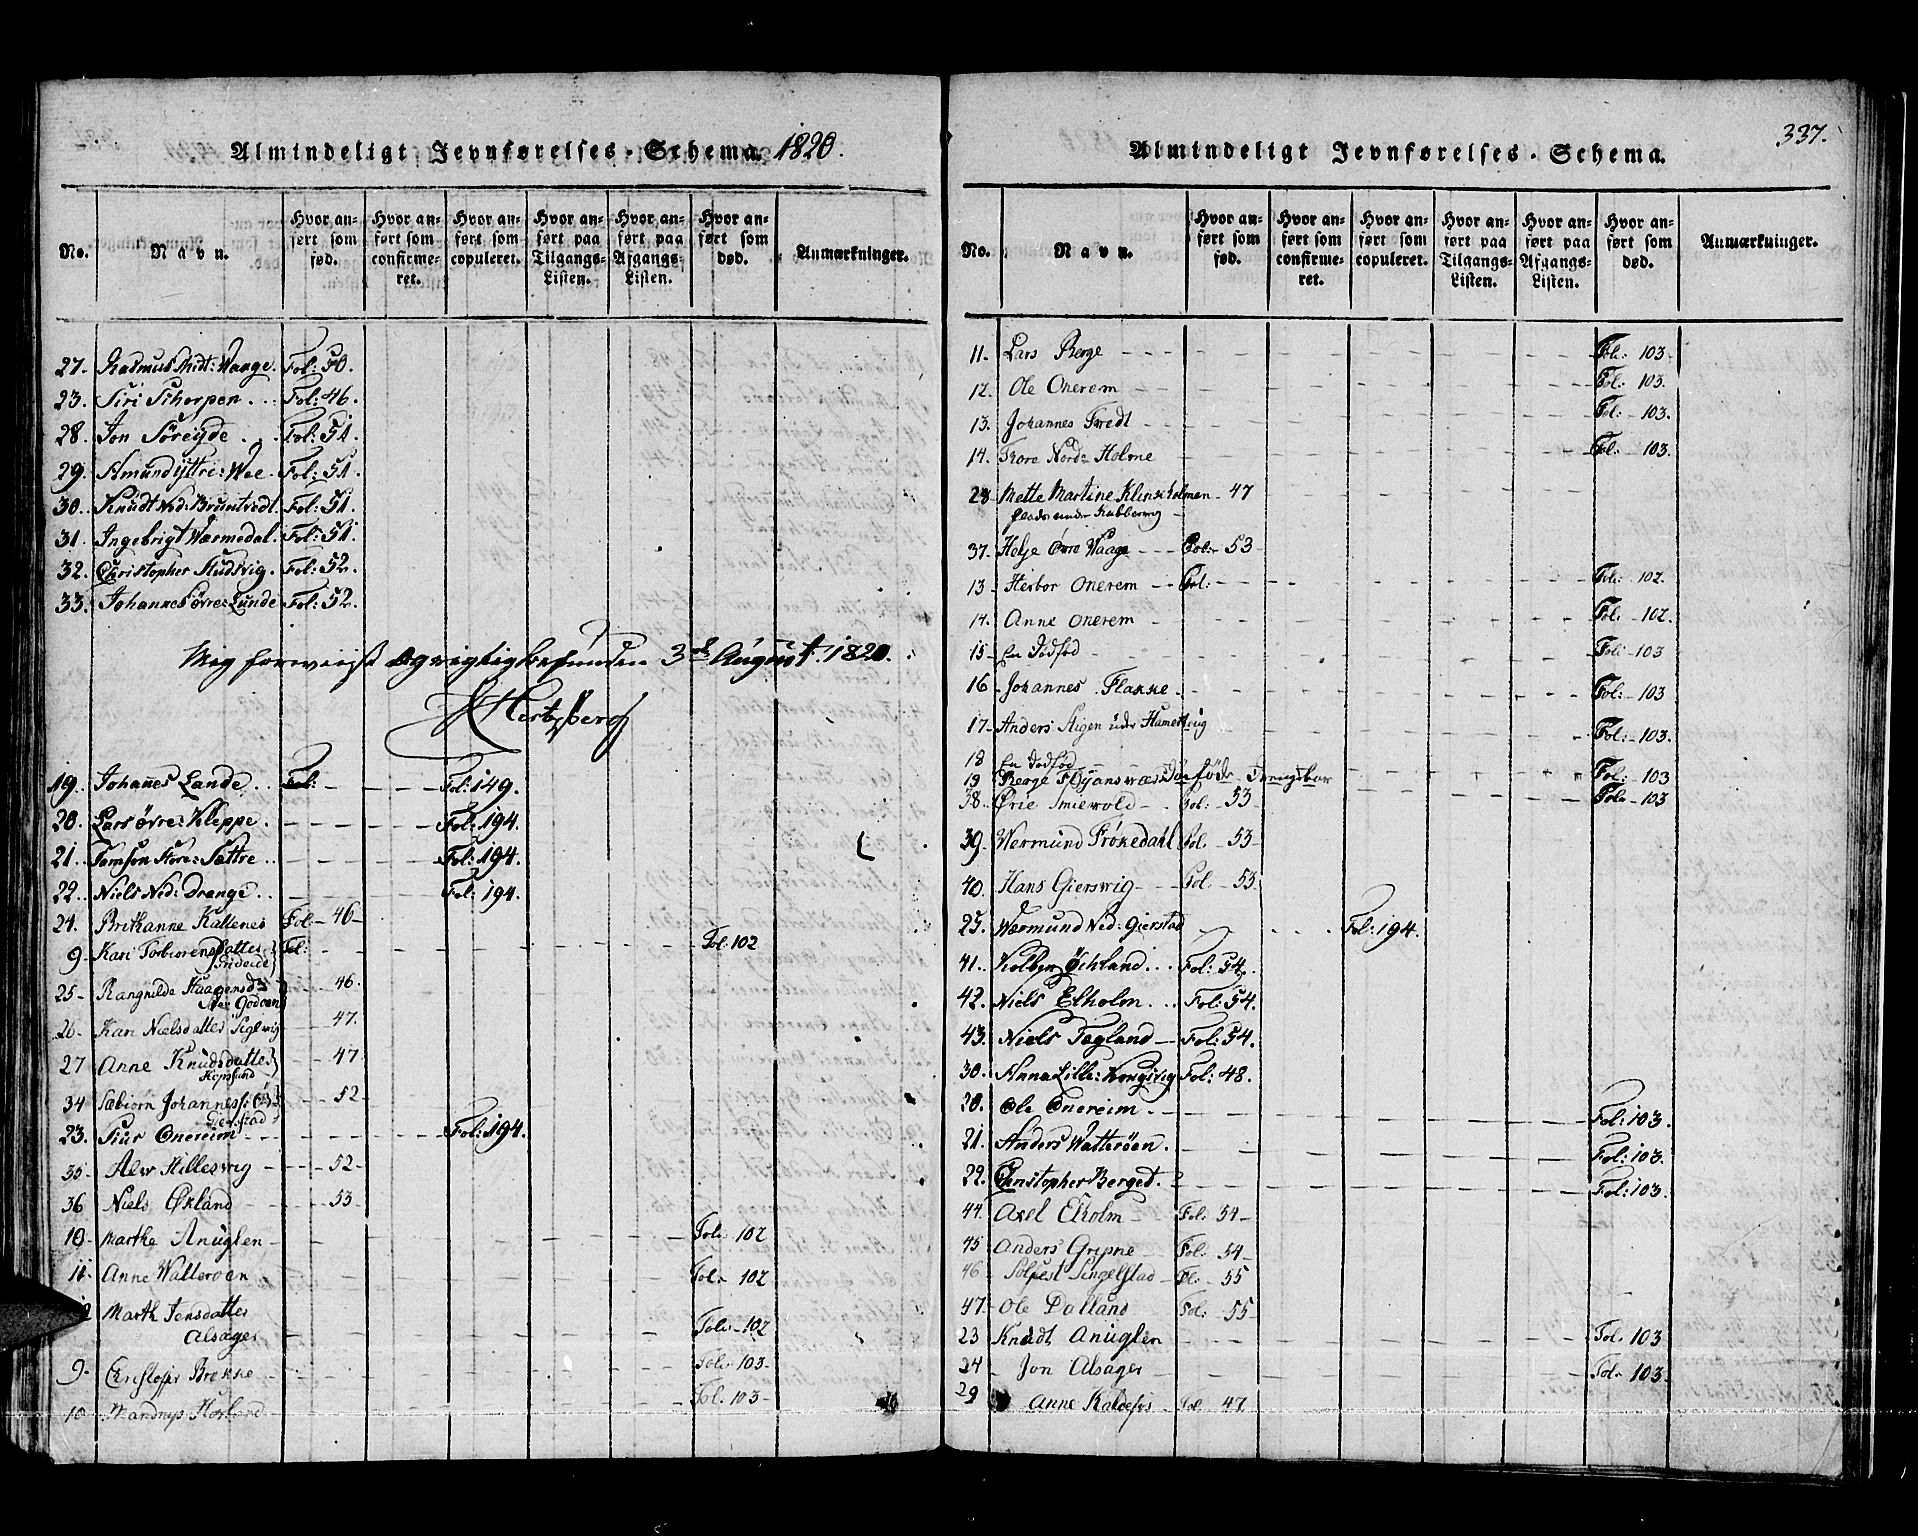 Almindeligt Jevnførelses-Schema. 1820.
No. Navn. Hvor anført som fød. Hvor anført som confirmeret. Hvor anført som copuleret. Hvor anført paa Tilgangs-Listen. Hvor anført paa Afgangs-Listen. Hvor anført som død. Anmærkninger.
27. Rasmus Midt: Waage. Fol: 50.
23. Siri Skorpen . . Fol: 46.
28. Jon Søreyde . . Fol: 51.
29. Amund yttre: Wee . Fol: 51.
30. Knudt Ned: Bruntvedt. Fol: 51.
31. Ingebrigt Warmedal. Fol: 51.
32. Christopher Hudsvig. Fol: 52.
33. Johannes øvre: Lunde Fol: 52.
Mig foreviist og rigtig befunden 3d August. 1820.
Hertzberg
19. Johañes Lande . . Fol: Fol: 149.
20. Lars øvre: Kleppe . Fol: 194.
21. Samson Store: Sættre . . Fol: 194.
22. Niels Ned: Drange . . Fol: 194.
24. Brithanne Kaltenes Fol - 46-
9. Kari Torbiørensdatter Fol: Fol: 102
25- Rangnilde Haagensd: 46.
Godøen
26- Kari Nielsdatter Siglevig 47.
27 Anne Knudsdatter - - 47
34 Sæbiorn Johanness: 52-
Gierstad
23. Siur Onereim - - - Fol: 194.
35 Alv Hilleswig - - - 52-
36 Niels Økland - 53-
10- Marthe Anuglen - Fol: 102
11. Anne Watterøen Fol: 102
Marth Jensdatter
Alsager Fol: - 102
9. Christoffer Brekke - Fol: 103-
10. Wandrup Fol: 103-
337.
Almindeligt Jevnførelses-Schema.
No. Navn. Hvor anført som fød. Hvor anført som confirmeret. Hvor anført som copuleret. Hvor anført paa Tilgangs-Listen. Hvor anført paa Afgangs-Listen. Hvor anført som død. Anmærkninger.
11. Lars Berge - - - Fol: 103-
12. Ole Onerem - - Fol: 103.
13. Johannes Tvedt - - - Fol: - 103.
14. Tore Nord: Holme Fol: - 103.
28 Mette Martine Klinsholmen - 47
under Kubbervig
37. Helje Øvre Waage - - - Fol: - 53-
13 - Herbor Onerem - - Fol: - - Fol: - 102.
14. Anne Onerem - Fol: - 102
15- En Dødfød - Fol: - 103
16 - Johannes Flakke - Fol: - 103
17- Anders Stigen under Fol: - 103.
18 En Dødfød - - Fol: - 103
19 Berge Fol: - 103
38. Ørie Smievold - - Fol: - 53
39. Wermund Frøkedahl Fol - 53-
40. Hans Gierswig - - - Fol - 53.
25. Wærmund Ned: Gierstad Fol: 194.
41.. Kolben Øchland . . . Fol: 54.
42. Niels Elholm . . . Fol: 54.
43. Niels Tegland - Fol: 54.
30. Anna Lille: Kongsvig Fol: 48.
20. Ole Onereim . - - Fol: 103.
21. Anders Watterøen. Fol: 103.
22. Christopher Berget. Fol: 103.
44. Axel Elholm - Fol: 54-
45 Anders Gripne - Fol: - 54-
46 - Solfest Singelstad - Fol: - 55
47- Ole Dalland - Fol: - 55
23 Knudt Anuglen Fol: 103
24 Jon Alsager - Fol: - 103.
29 Anne Kaldefos - Fol - 47